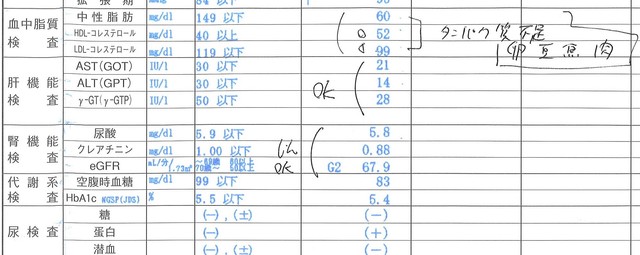 血中脂質 検査
中性脂肪 mg/dl 149 以下 60
HDL-コレステロール mg/dl 40 以上 52
LDL-コレステロール mg/dl 119 以下 99
タンパク質不足
卵 豆 魚 肉
肝機能 検査
AST(GOT) IU/l 30 以下 21
ALT(GPT) IU/l 30 以下 14
γ-GT(γ-GTP) IU/l 50 以下 28
OK
腎機能 検査
尿酸 mg/dl 5.9 以下 5.8
クレアチニン mg/dl 1.00 以下 0.88
eGFR mL/分/1.73㎡ G2 67.9
じん OK
代謝系 検査
空腹時血糖 mg/dl 99 以下 83
HbA1c NGSP(JDS) % 5.5 以下 5.4
尿検査
糖 (−),(±) (−)
蛋白 (−) (+)
潜血 (−),(±) (−)